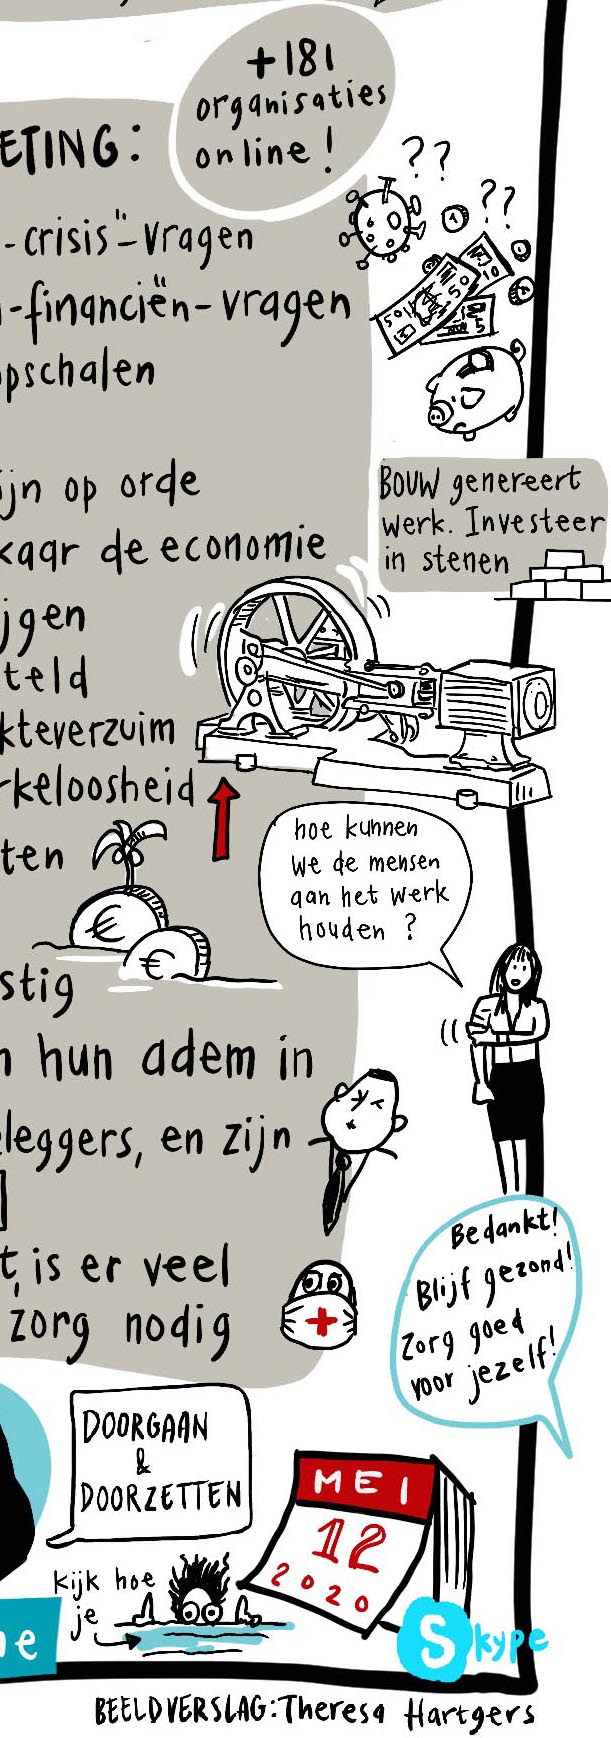 +181
organisaties
online!
ETING:
??
??
-crisis"-vragen
-financiën-vragen
50
50
10
5
pschalen
BOUW genereert
werk. Investeer
in stenen
jn op orde
kaar de economie
jgen
teld
kteverzuim
rkeloosheid
hoe kunnen
we de mensen
aan het werk
houden ?
ten
€
€
stig
n hun adem in
leggers, en zijn
Bedankt!
Blijf gezond!
zorg goed
voor jezelf!
t, is er veel
zorg nodig
DOORGAAN
&
DOORZETTEN
MEI
12
2020
kijk hoe
je
ne
Skype
BEELDVERSLAG: Theresa Hartgers